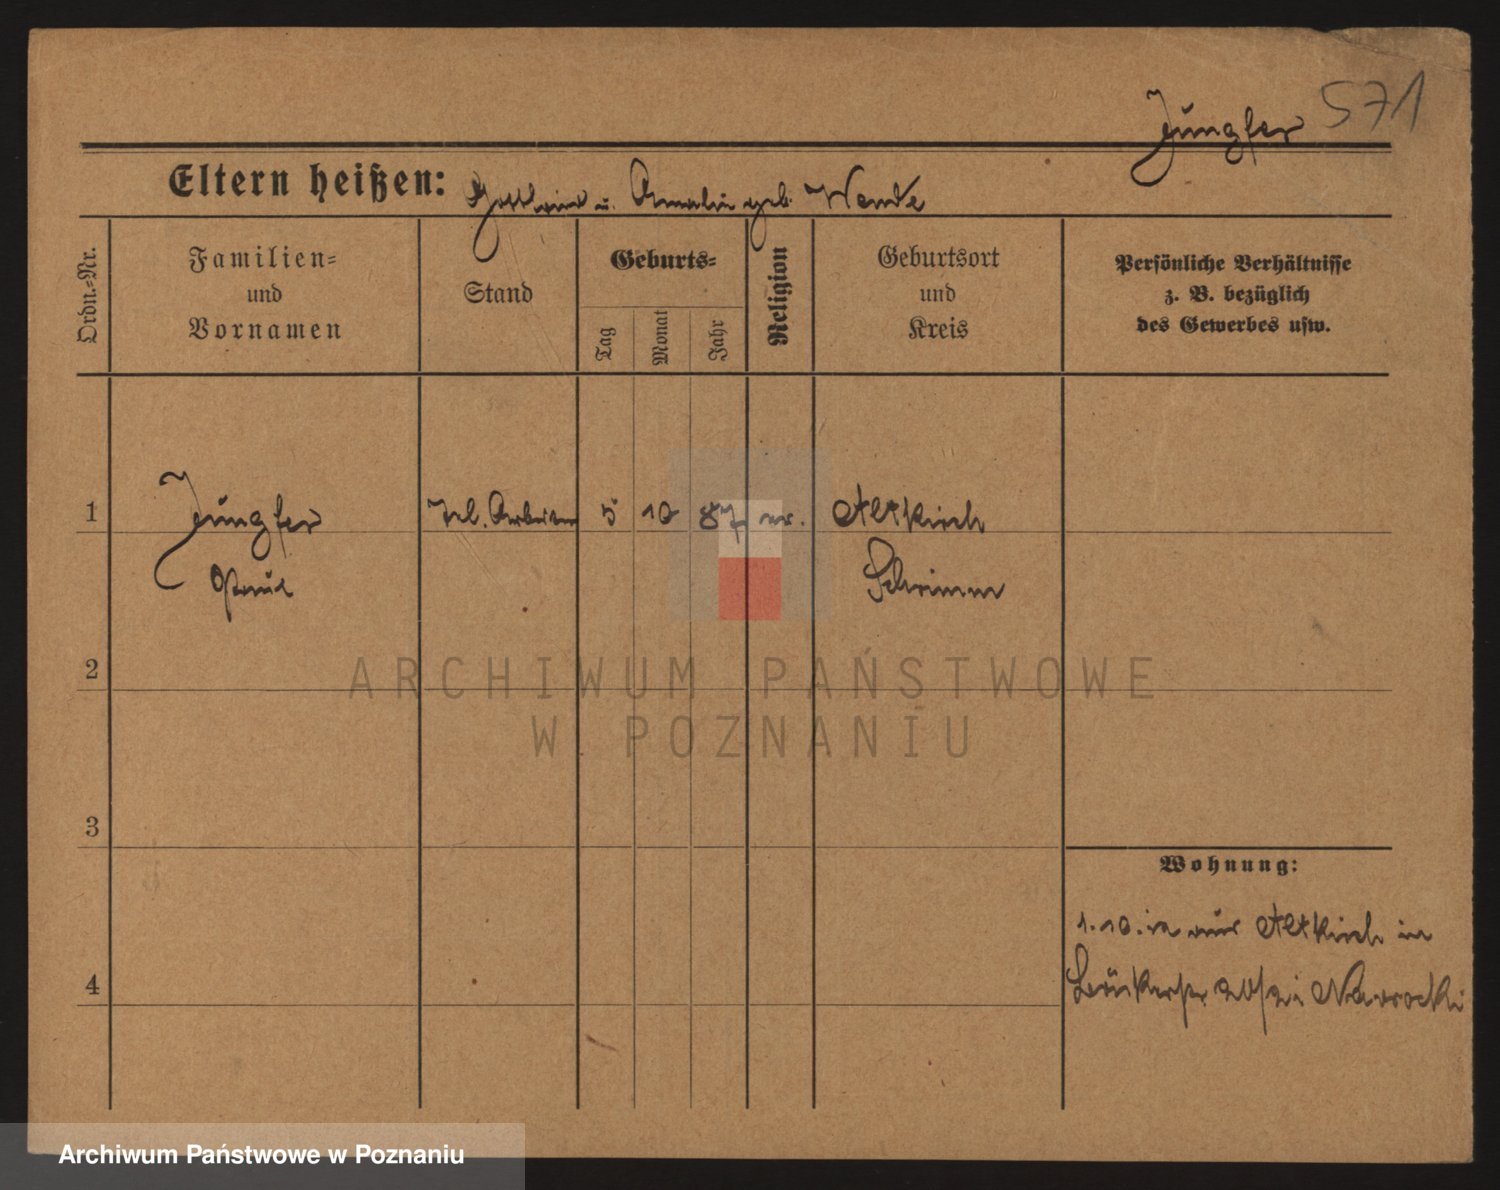 Jungfer 571
Eltern heißen: Gottlieb u. Amalie geb. Wende
Ordn.-Nr.
Familien-
und
Vornamen
Stand
Geburts-
Tag
Monat
Jahr
Religion
Geburtsort
und
Kreis
Persönliche Verhältnisse
z. B. bezüglich
des Gewerbes usw.
1 Jungfer led. Arbeiter 5 10 87 ev. Altkirch
Paul Schrimm
2
ARCHIWUM PAŃSTWOWE
W POZNANIU
3
Wohnung:
1.10. aus Altkirch in
Nawrocki
4
Archiwum Państwowe w Poznaniu